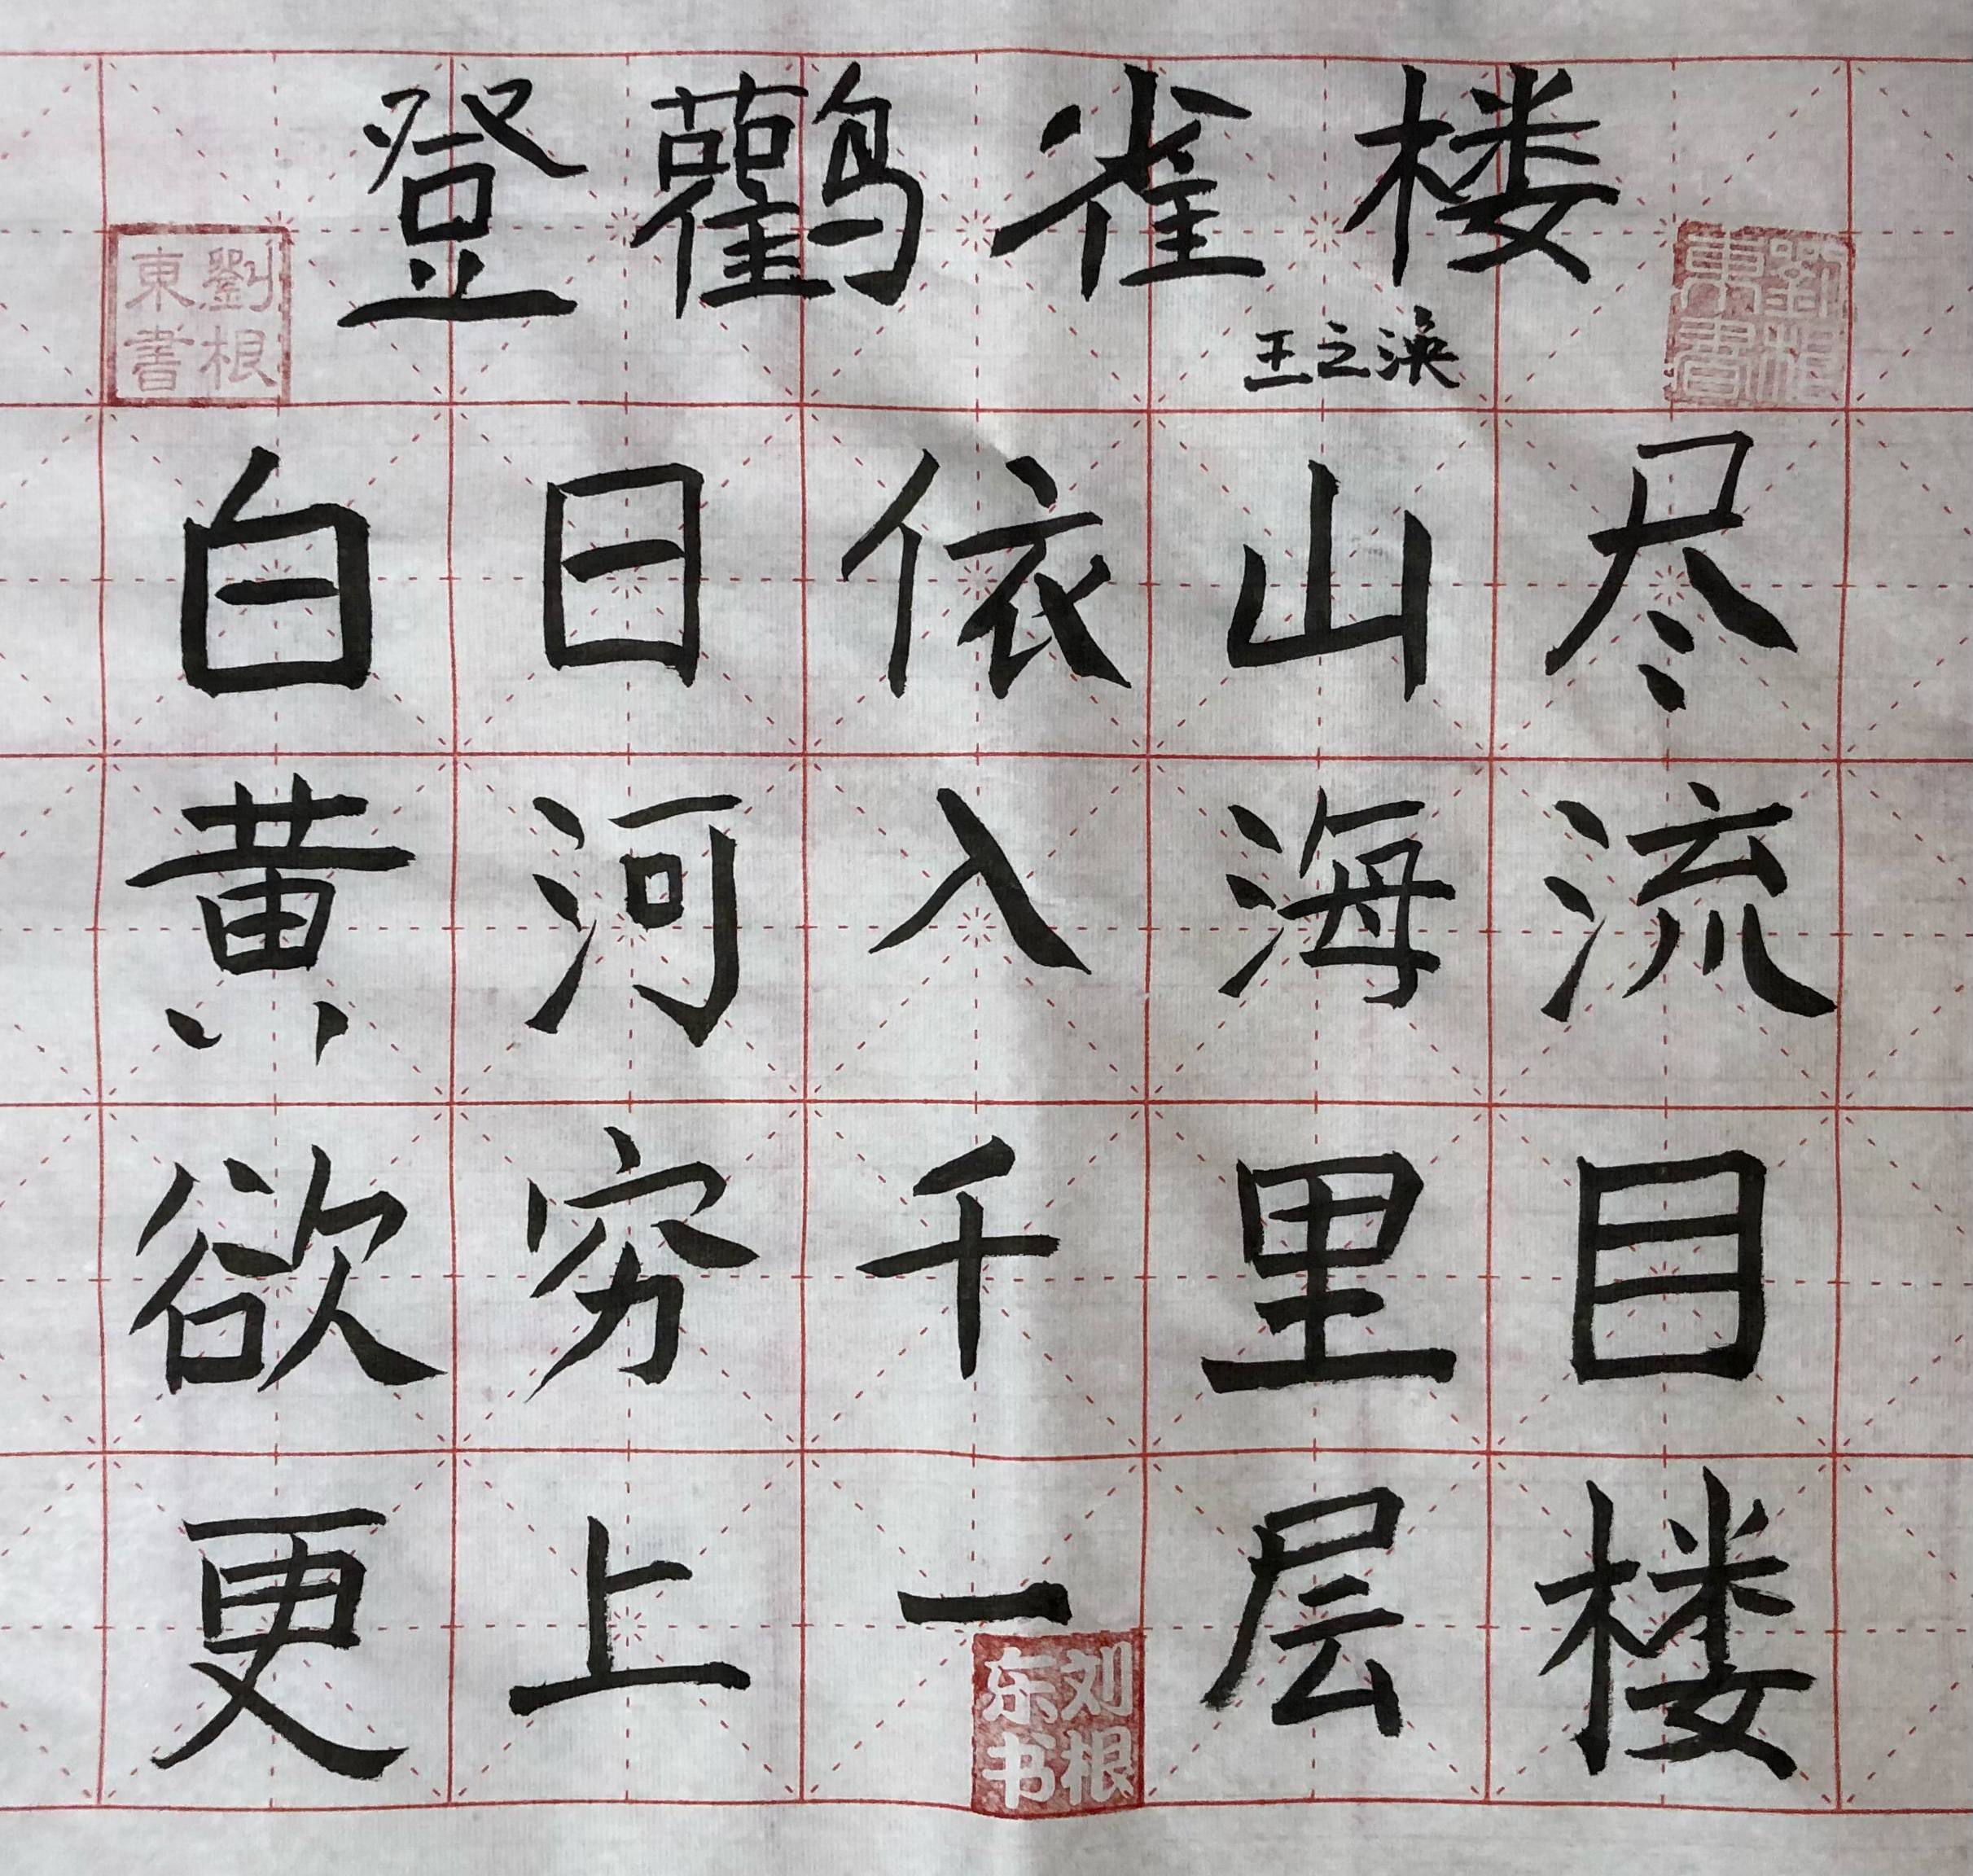 登鹳雀楼
王之涣
劉根東書
劉根東書
白日依山尽
黄河入海流
欲穷千里目
更上一层楼
刘根东书